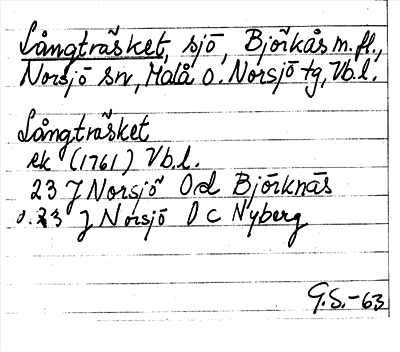 Långträsket, sjö, Björkås m.fl.,
Norsjö sn, Malå o. Norsjö tg, Vb.l.
Långträsket
ek (1761) Vb.l.
23 J Norsjö Od Björknäs
o. 23 J Norsjö Oc Nyberg
G.S.-63